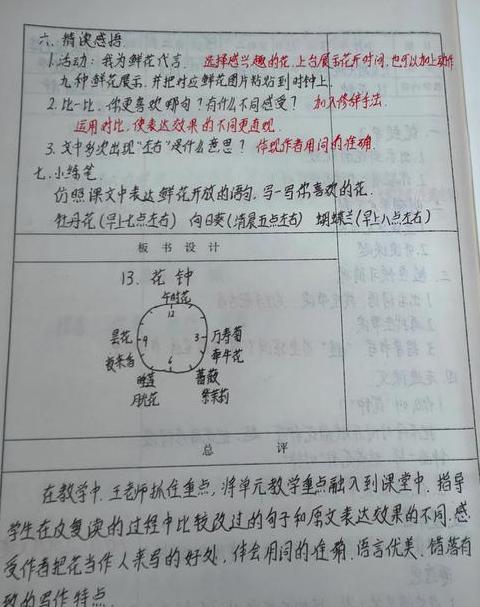 六、精读感悟.
1.活动:我为鲜花代言. 选择感兴趣的花,上台展示花开时间,也可以加上动作
九种鲜花展示,并把对应鲜花图片粘贴到时钟上.
2.比一比,你更喜欢哪句?有什么不同感受? 加入修辞手法.
运用对比,使表达效果的不同更直观.
3.文中多次出现“左右”是什么意思? 体现作者用词的准确.
七.小练笔.
仿照课文中表达鲜花开放的语句,写一写你喜欢的花.
牡丹花(早上七点左右) 向日葵(清晨五点左右) 蝴蝶兰(早上八点左右)
板书设计
13.花钟
午时花
12
昙花 9 3 万寿菊
夜来香 牵牛花
6
睡莲 蔷薇
月光花 紫茉莉
总评
在教学中,王老师抓住重点,将单元教学重点融入到课堂中.指导
学生在反复读的过程中比较改过的句子和原文表达效果的不同.感
受作者把花当作人来写的好处,体会用词的准确.语言优美、错落有
致的写作特点.